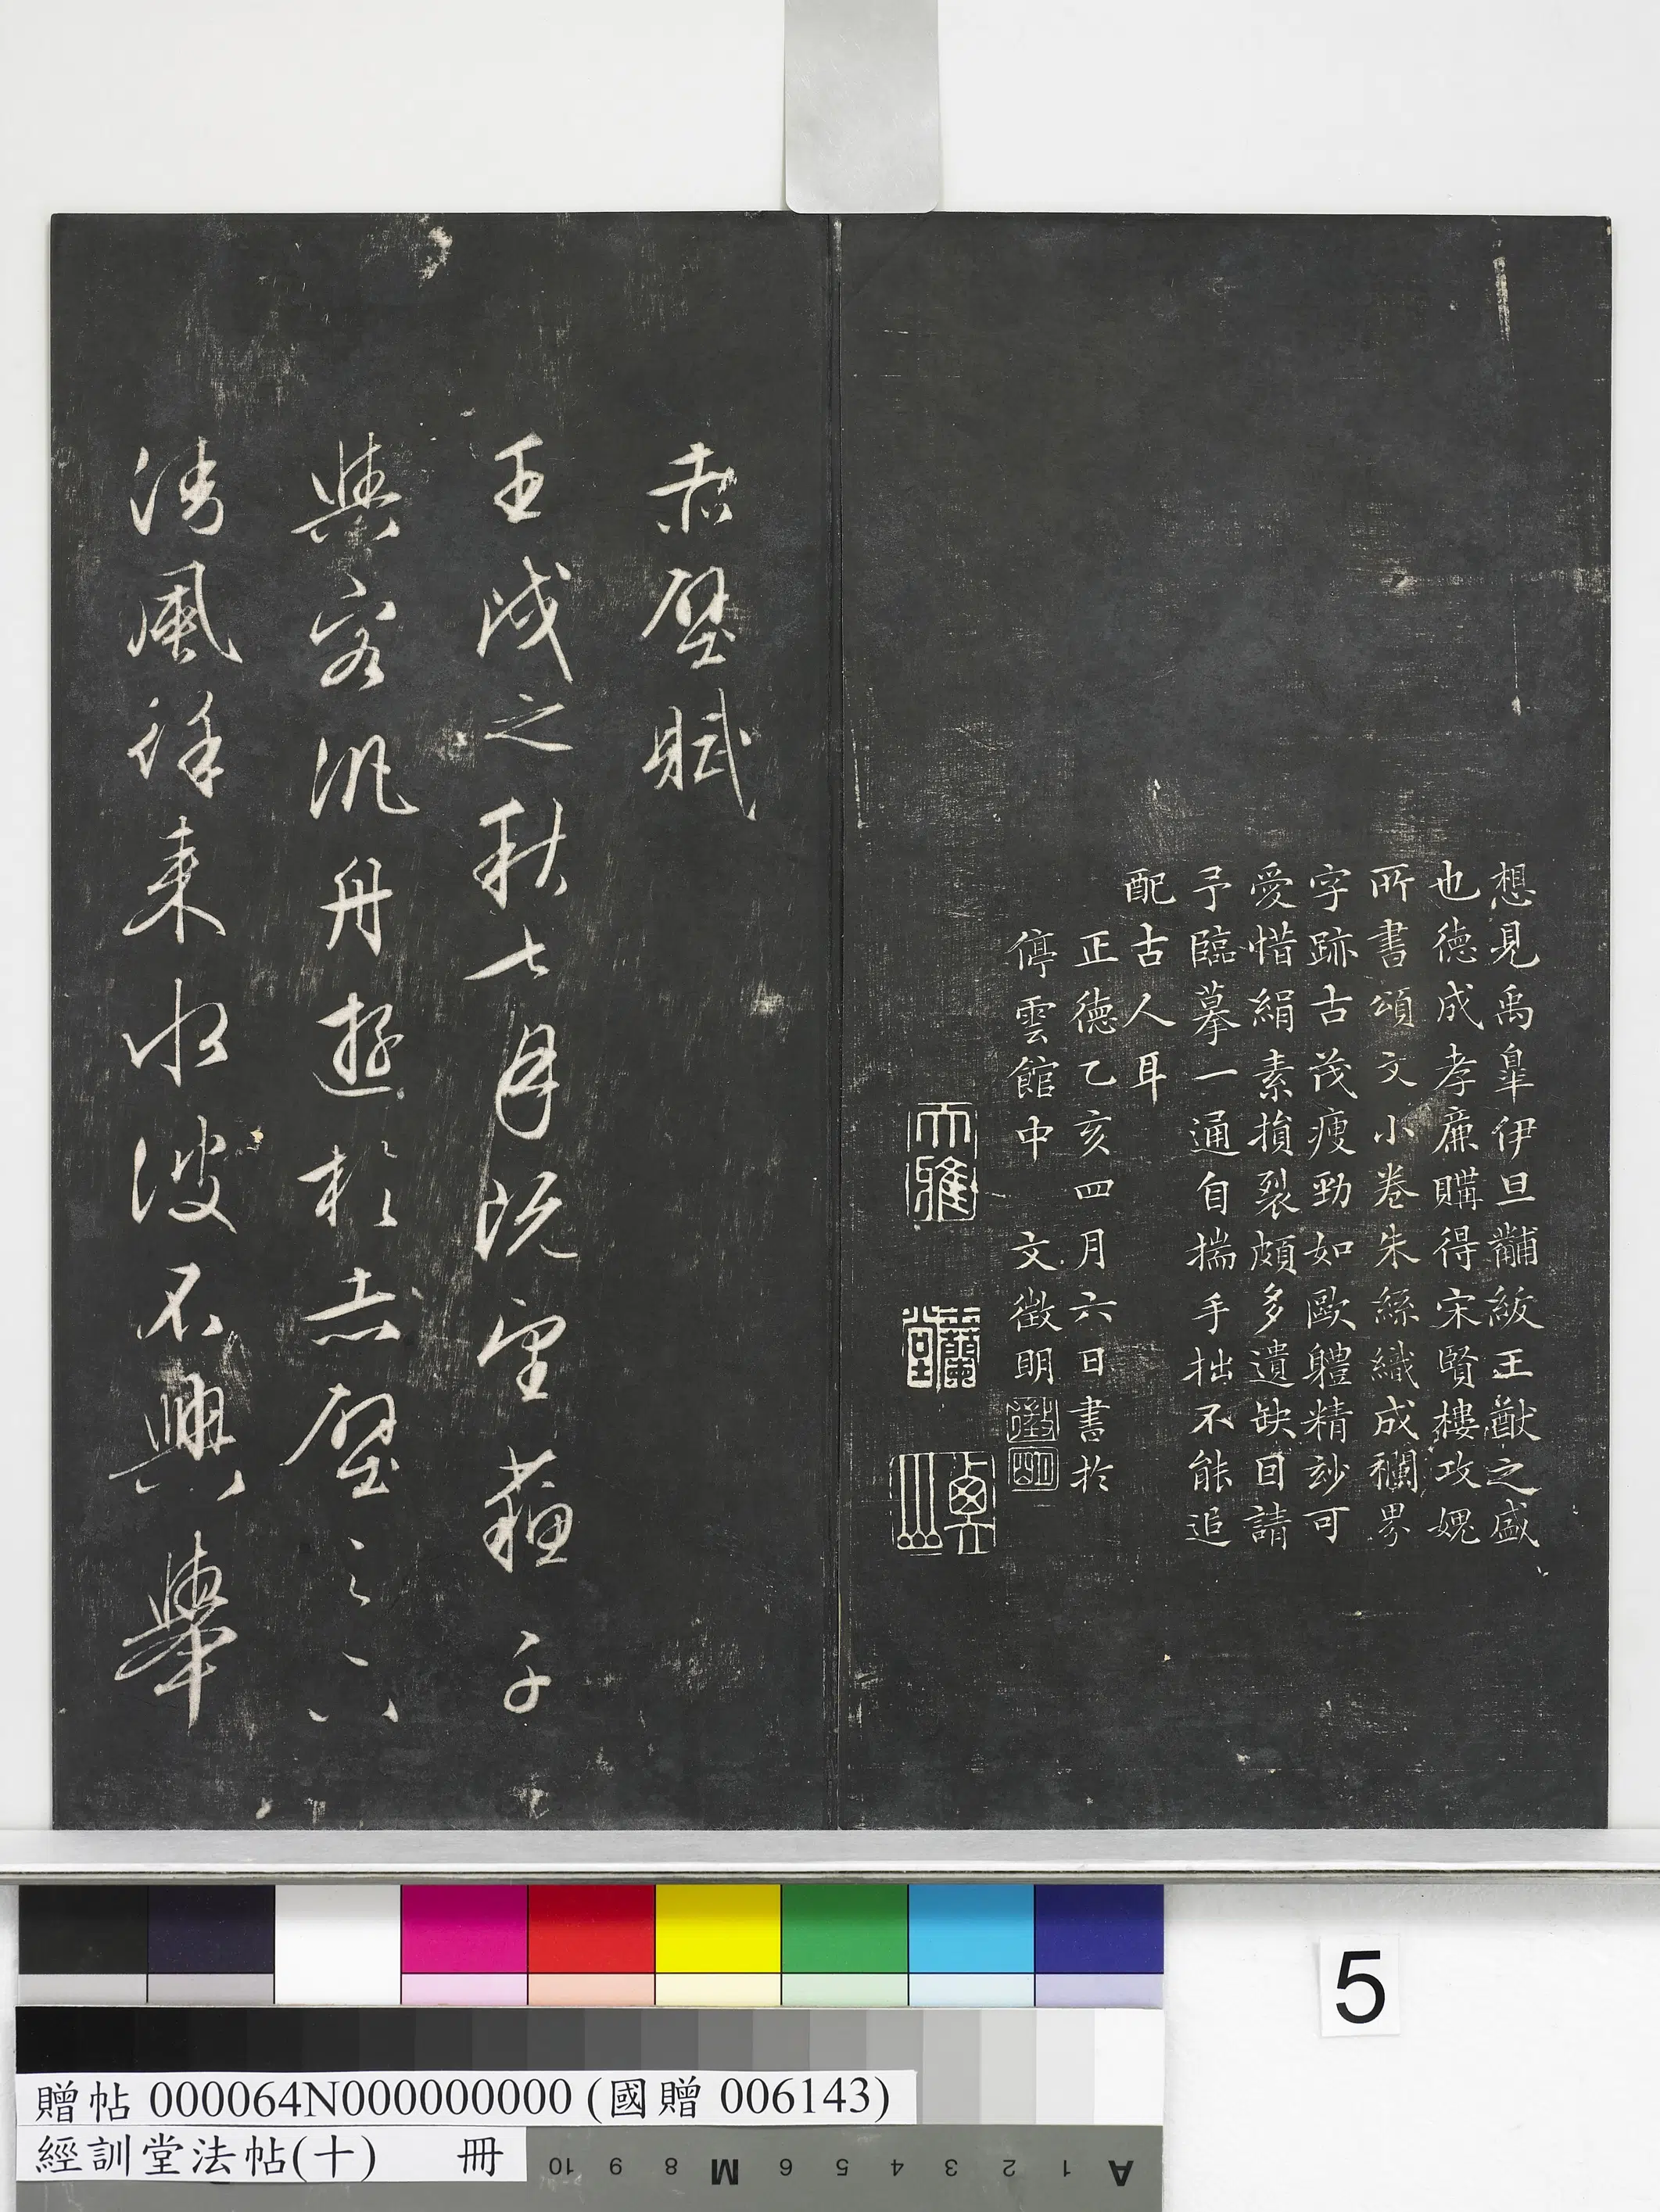 想見禹皐伊旦黼紱王猷之盛
也德成孝廉購得宋賢樓攻媿
所書頌文小卷朱絲織成襴界
字跡古茂瘦勁如歐體精玅可
愛惜絹素損裂頗多遺缺因請
予臨摹一通自揣手拙不能追
配古人耳
正德乙亥四月六日書於
停雲館中 文徵明
徵明
大雅
赤壁賦
壬戌之秋七月既望蘇子
與客汎舟遊於赤壁之下
清風徐來水波不興舉
5
贈帖 000064N000000000 (國贈 006143)
經訓堂法帖(十) 冊
A 1 2 3 4 5 6 M 8 9 10